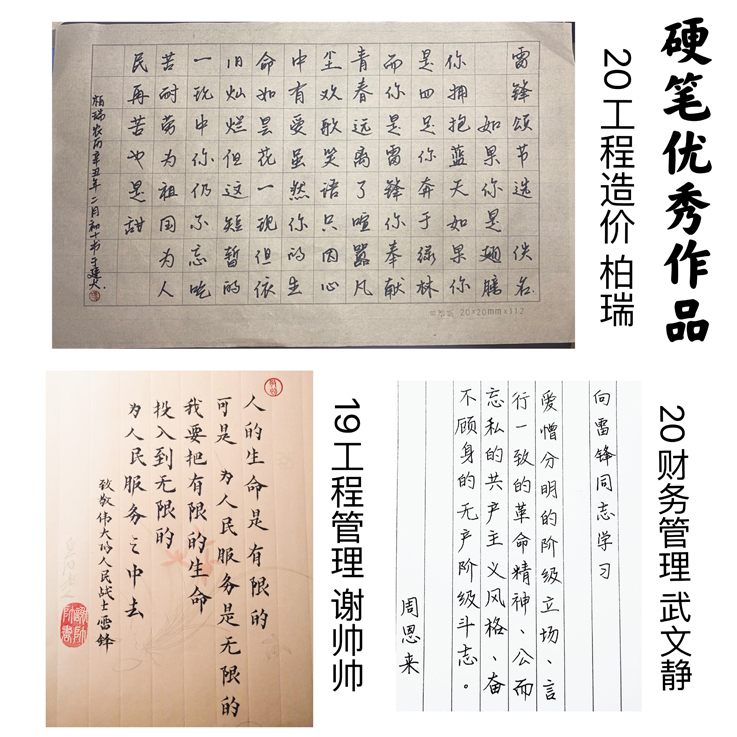 硬笔优秀作品
20工程造价 柏瑞
雷锋颂节选 佚名
如果你是翅膀
你拥抱蓝天如果你
是四足你奔于绿林
而你是雷锋你奉献
青春远离了喧嚣凡
尘欢歌笑语只因心
中有爱虽然你的生
命如昙花一现但依
旧灿烂但这短暂的
一现中你仍不忘吃
苦耐劳为祖国为人
民再苦也是甜
柏瑞农历辛丑年二月初十书于建大.
20×20mm×112
20财务管理 武文静
向雷锋同志学习
爱憎分明的阶级立场、言
行一致的革命精神、公而
忘私的共产主义风格、奋
不顾身的无产阶级斗志。
周恩来
19工程管理 谢帅帅
人的生命是有限的
可是 为人民服务是无限的
我要把有限的生命
投入到无限的
为人民服务之中去
致敬伟大的人民战士雷锋